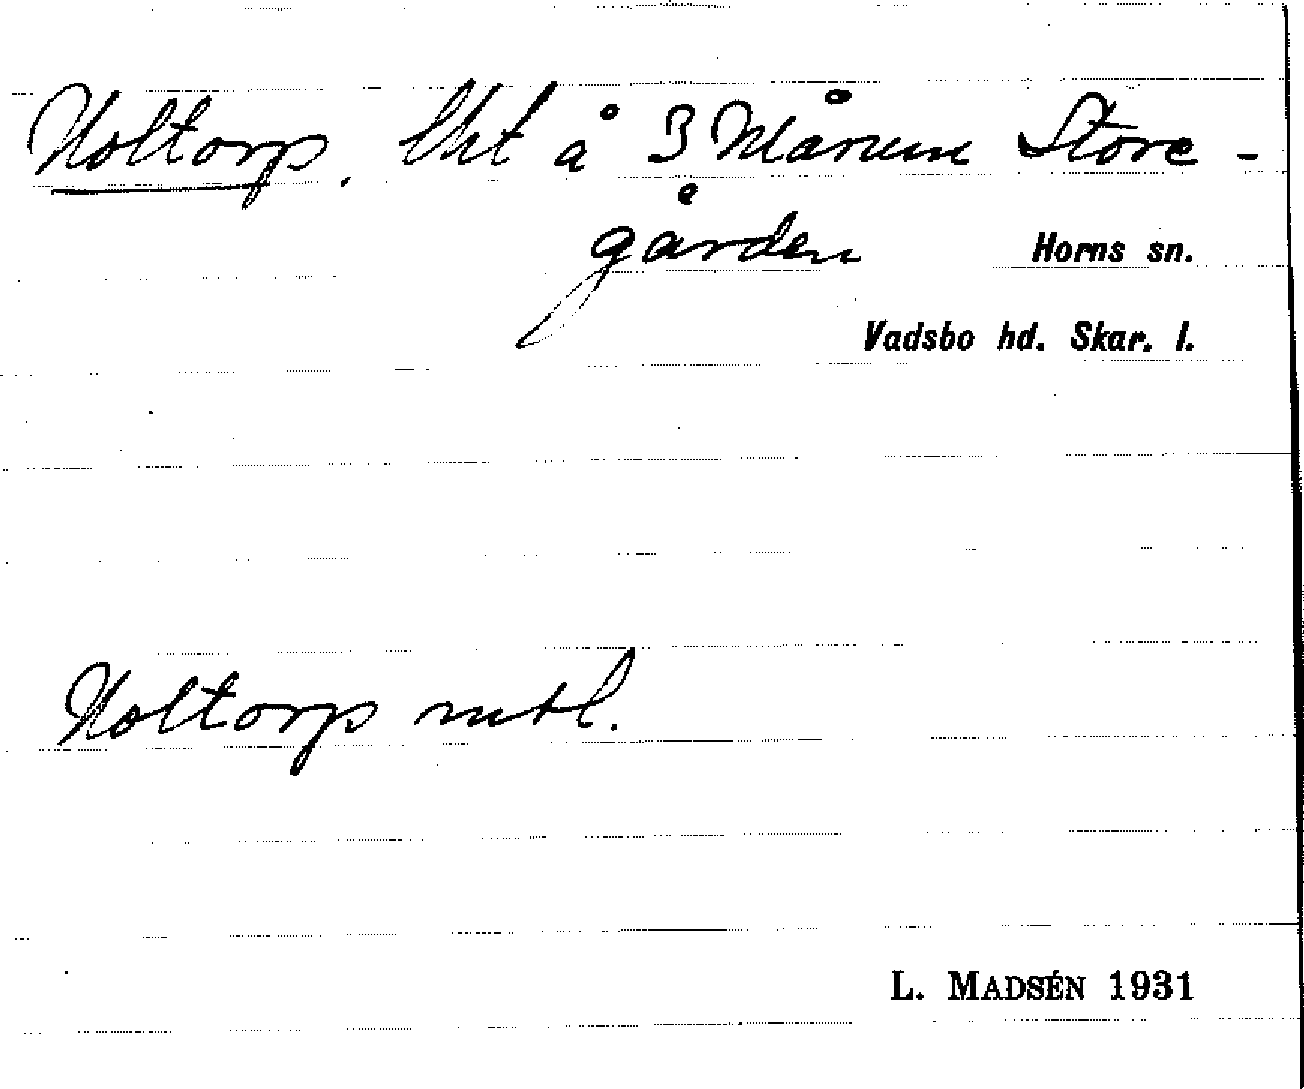 Noltorp. lht å 3 Mårum Store-
gården
Horns sn.
Vadsbo hd. Skar. l.
Noltorp mtl.
L. MADSÉN 1931